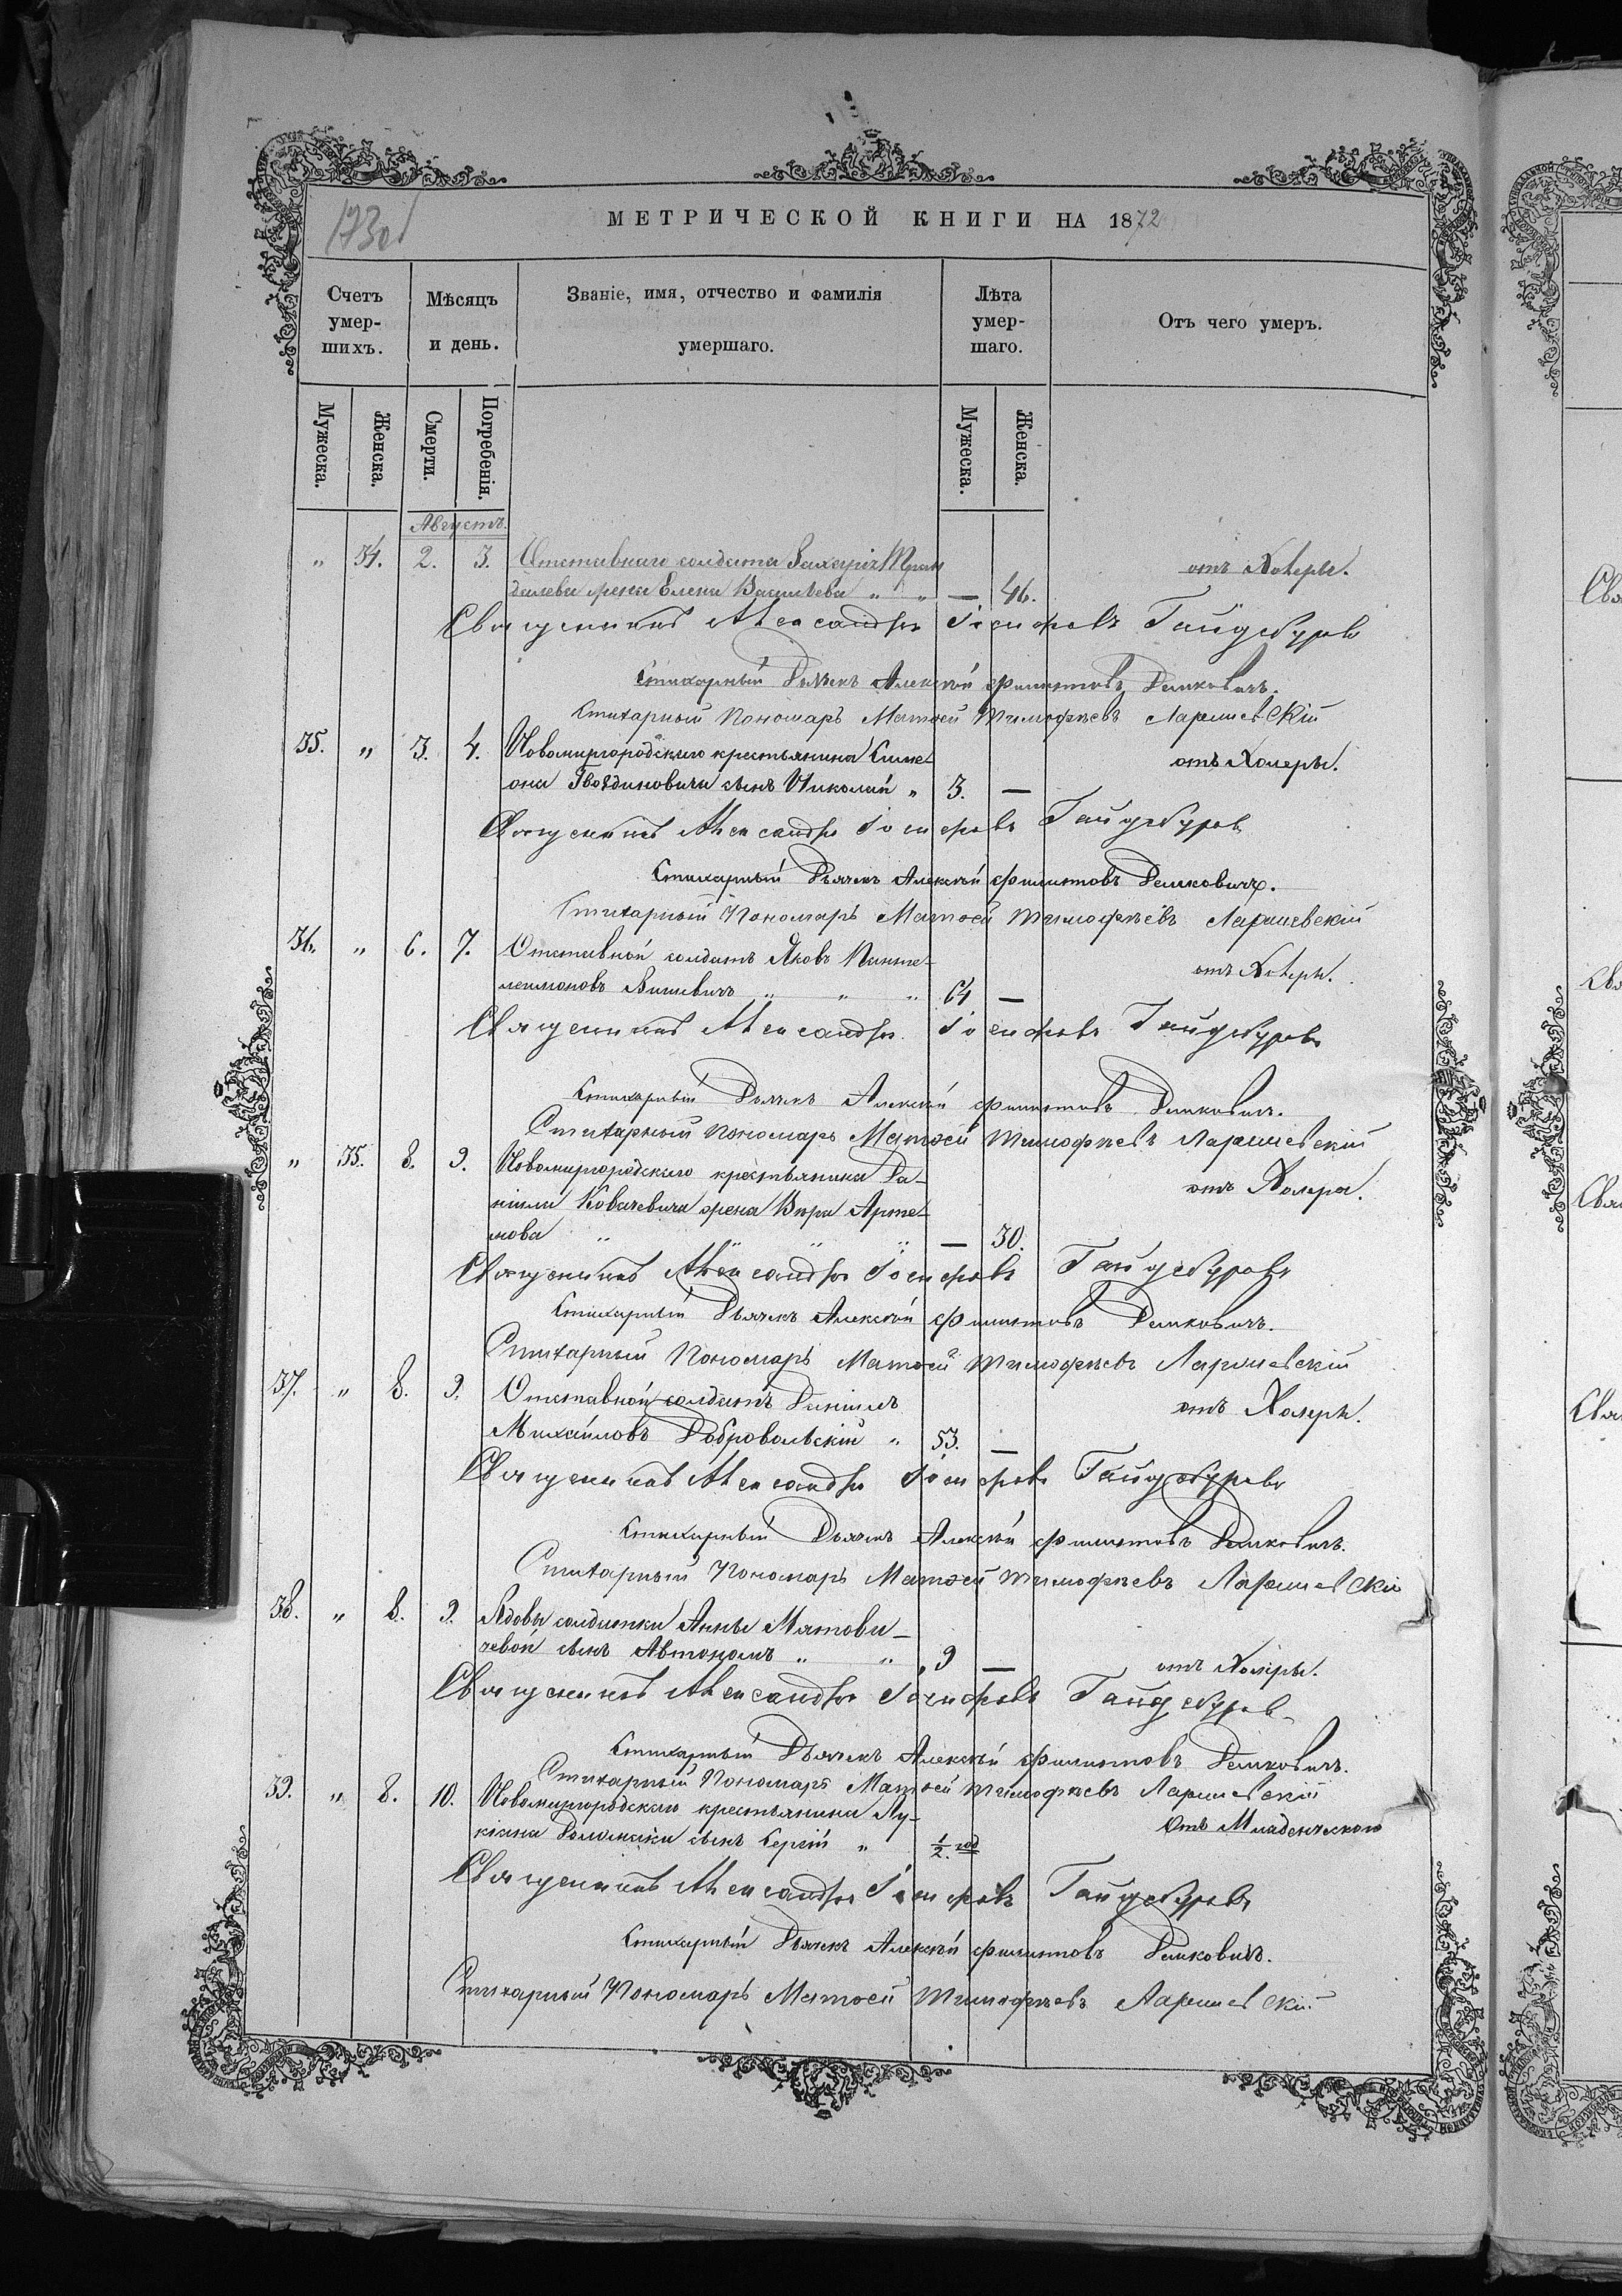 173об
МЕТРИЧЕСКОЙ КНИГИ НА 1872
Счетъ умер-шихъ.
Мѣсяцъ и день.
Званіе, имя, отчество и фамилія умершаго.
Лѣта умер-шаго.
Отъ чего умеръ.
Мужеска.
Женска.
Смерти.
Погребенія.
Мужеска.
Женска.
Августъ.
" 34. 2. 3. Отставнаго солдата Захарія
жена Елена Васильева " " — 46. отъ Холеры.
Священникъ Александръ Іосифовъ Гайдебуровъ
Стихарный Дьячекъ Алексѣй Филиповъ Демковичъ.
Стихарный Пономарь Матѳей Тимофѣевъ Ларшевскій
35. " 3. 4. Новомиргородскаго крестьянина Симе-
она Гвоздиковича сынъ Николай " 3. — отъ Холеры.
Священникъ Александръ Іосифовъ Гайдебуровъ
Стихарный Дьячекъ Алексѣй Филиповъ Демковичъ.
Стихарный Пономарь Матѳей Тимофѣевъ Ларшевскій
36. " 6. 7. Отставной солдатъ Яковъ Панте-
леимоновъ " " " 64 — отъ Холеры.
Священникъ Александръ Іосифовъ Гайдебуровъ
Стихарный Дьячекъ Алексѣй Филиповъ Демковичъ.
Стихарный Пономарь Матѳей Тимофѣевъ Ларшевскій
" 35. 8. 9. Новомиргородскаго крестьянина Да-
ніила Ковачевича жена Вѣра Арте-
мова " " " " — 30. отъ Холеры.
Священникъ Александръ Іосифовъ Гайдебуровъ
Стихарный Дьячекъ Алексѣй Филиповъ Демковичъ.
Стихарный Пономарь Матѳей Тимофѣевъ Ларшевскій
37. " 8. 9. Отставной солдатъ Даніилъ
Михайловъ Добровольскій " 53. — отъ Холеры.
Священникъ Александръ Іосифовъ Гайдебуровъ
Стихарный Дьячекъ Алексѣй Филиповъ Демковичъ.
Стихарный Пономарь Матѳей Тимофѣевъ Ларшевскій
38. " 8. 9. Вдовы солдатки Анны Матови-
чевой сынъ Автономъ " " 9 — отъ Холеры.
Священникъ Александръ Іосифовъ Гайдебуровъ
Стихарный Дьячекъ Алексѣй Филиповъ Демковичъ.
Стихарный Пономарь Матѳей Тимофѣевъ Ларшевскій
39. " 8. 10. Новомиргородскаго крестьянина Лу-
кіана сынъ Сергій " 1/2. год Отъ Младенческаго
Священникъ Александръ Іосифовъ Гайдебуровъ
Стихарный Дьячекъ Алексѣй Филиповъ Демковичъ.
Стихарный Пономарь Матѳей Тимофѣевъ Ларшевскій